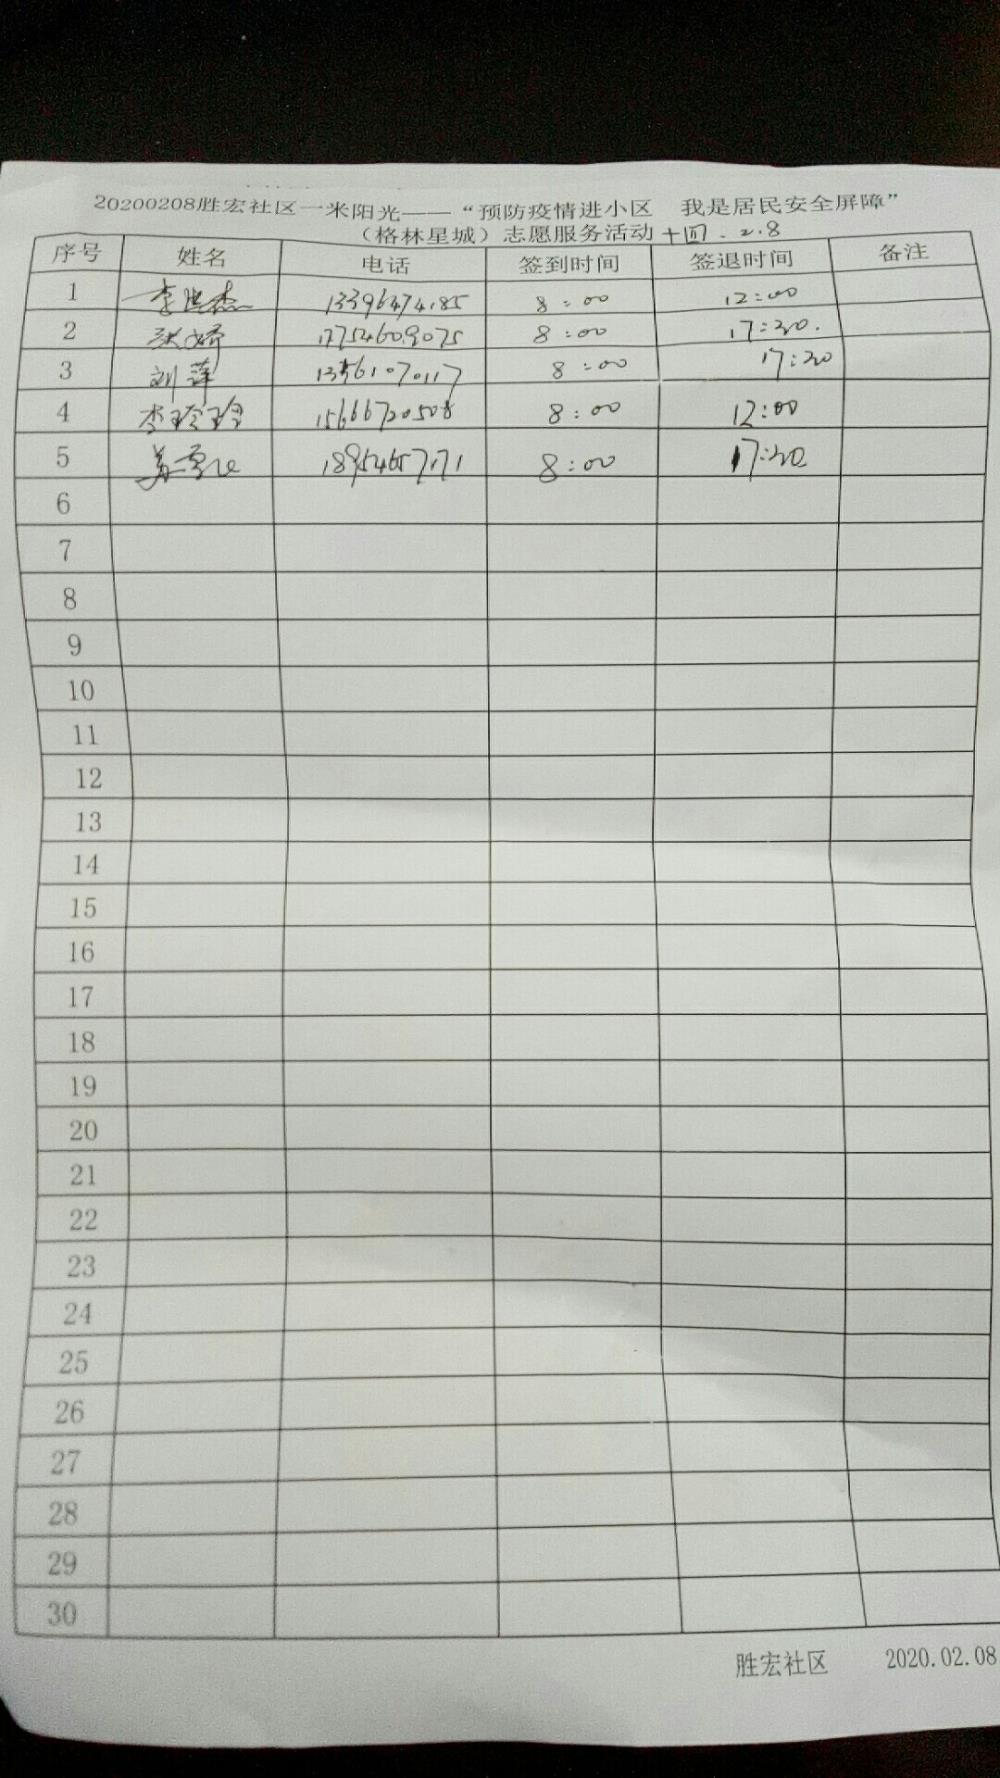 20200208胜宏社区一米阳光——“预防疫情进小区 我是居民安全屏障”
（格林星城）志愿服务活动 十四.2.8
序号 姓名 电话 签到时间 签退时间 备注
1 李 杰 13396474185 8:00 12:00
2 张娇 17754609075 8:00 17:20.
3 刘萍 13561070117 8:00 17:20
4 李玲玲 15666720508 8:00 12:00
5 18954657171 8:00 17:20
6
7
8
9
10
11
12
13
14
15
16
17
18
19
20
21
22
23
24
25
26
27
28
29
30
胜宏社区 2020.02.08